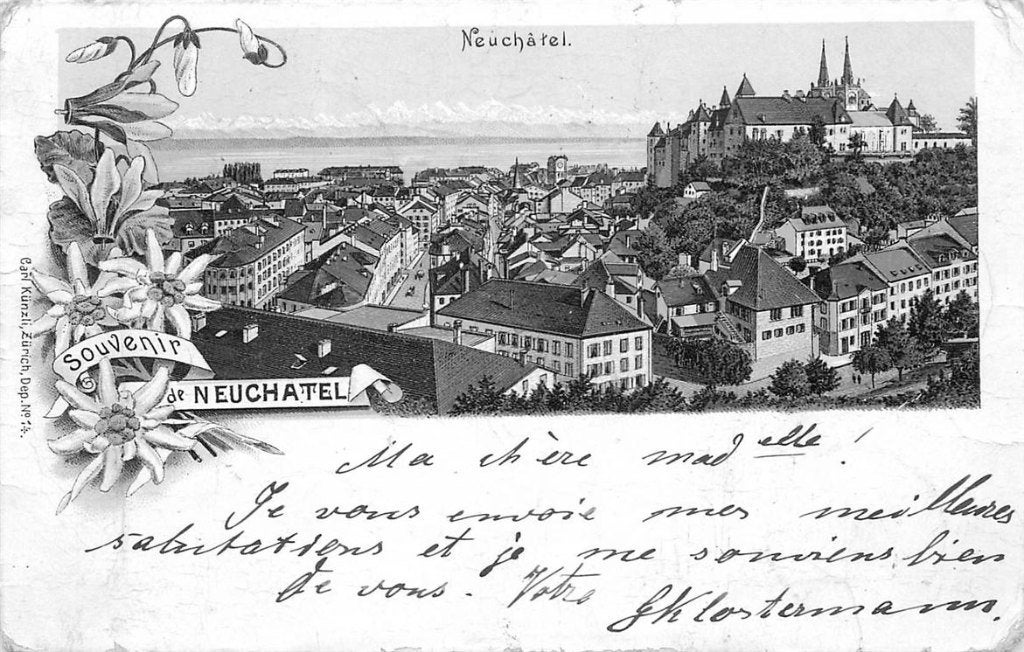 Neuchâtel.
Souvenir
de NEUCHATEL
Carl Künzli, Zürich, Dep. No 74.
Ma chère mad elle !
Je vous envoie mes meilleures
salutations et je me souviens bien
de vous. Votre
GKlostermann.